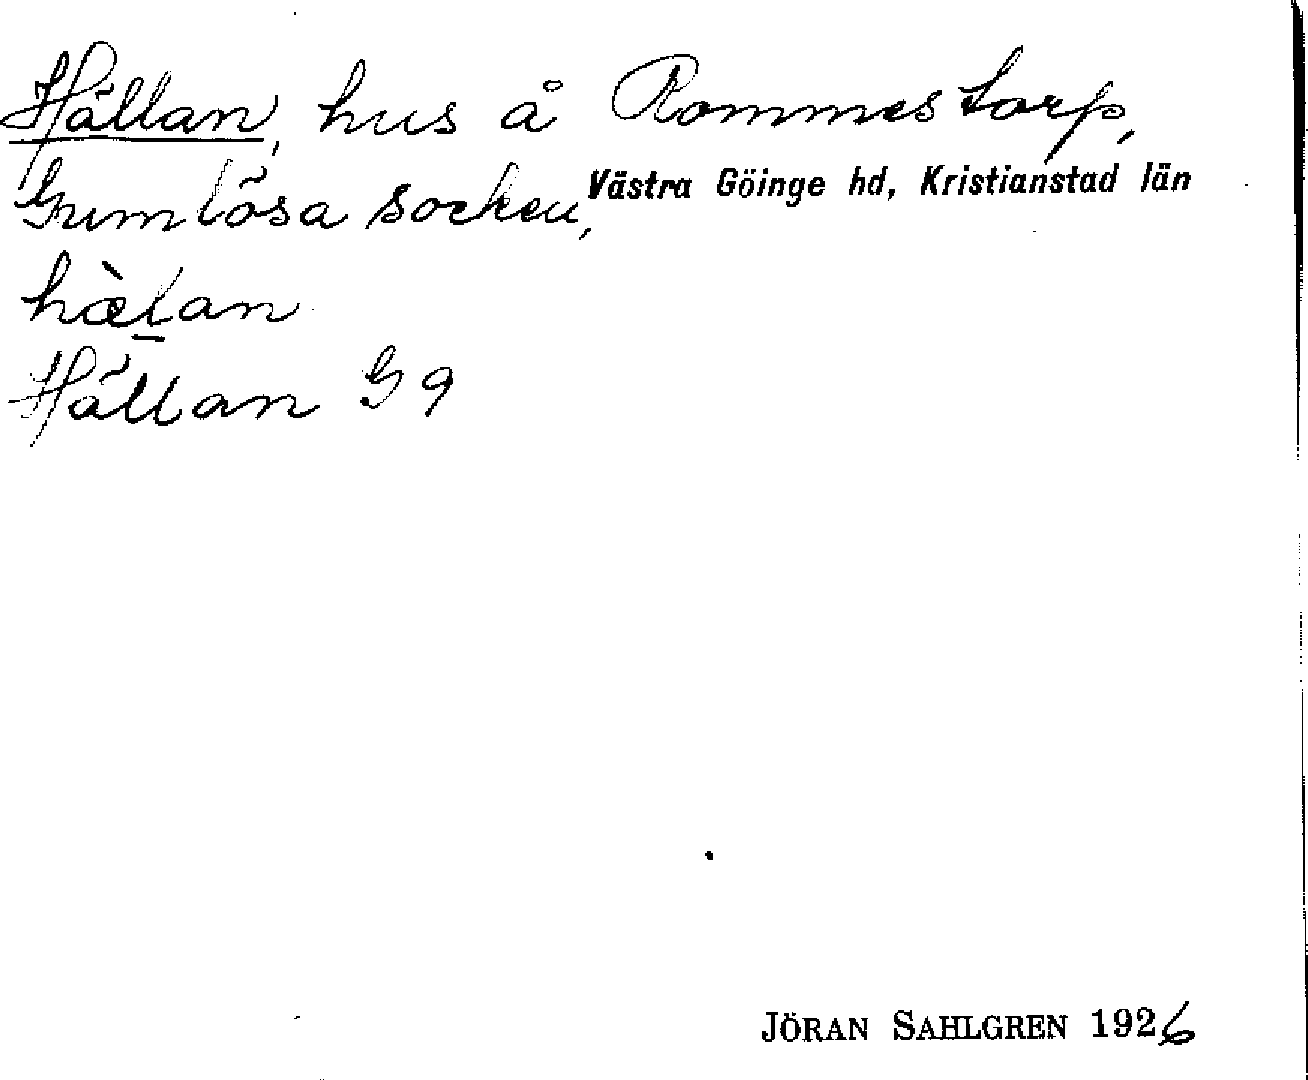 Hällan, hus å Rommestorp,
Gumlösa socken, Västra Göinge hd, Kristianstad län
hæ̀l̠an
Hällan G 9
JÖRAN SAHLGREN 1926